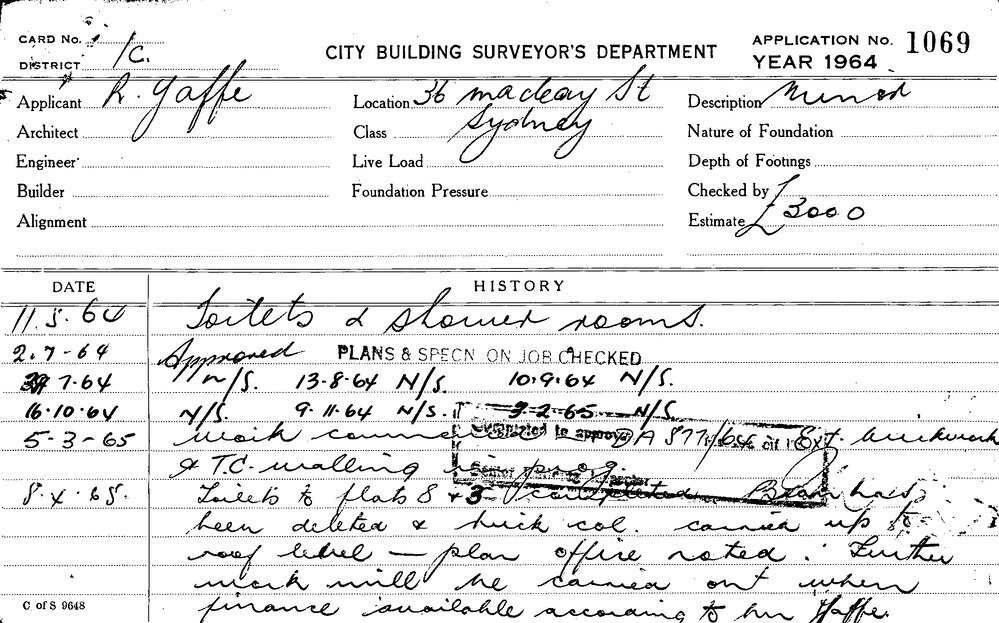 CARD No. 1
DISTRICT /C.
CITY BUILDING SURVEYOR'S DEPARTMENT
APPLICATION No. 1069
YEAR 1964
Applicant R. Yaffe
Location 36 Macleay St
Sydney
Description Minor
Architect
Class
Nature of Foundation
Engineer
Live Load
Depth of Footings
Builder
Foundation Pressure
Checked by
Alignment
Estimate £3000
DATE HISTORY
11.5.64 Toilets & shower rooms.
2.7-64 Approved PLANS & SPECN ON JOB CHECKED
7.64 N/S. 13-8-64 N/S. 10.9.64 N/S.
16.10.64 N/S. 9.11.64 N/S. 3-2-65 N/S.
5-3-65 Work DA 877/64 Ext. brickwork
& T.C. walling in prog.
8.4.65. Toilets to flats 8 & 3 completed Beam has
been deleted & brick col. carried up to
roof level — plan office noted. Further
work will be carried out when
finance available according to Mr Yaffe.
C of S 9648